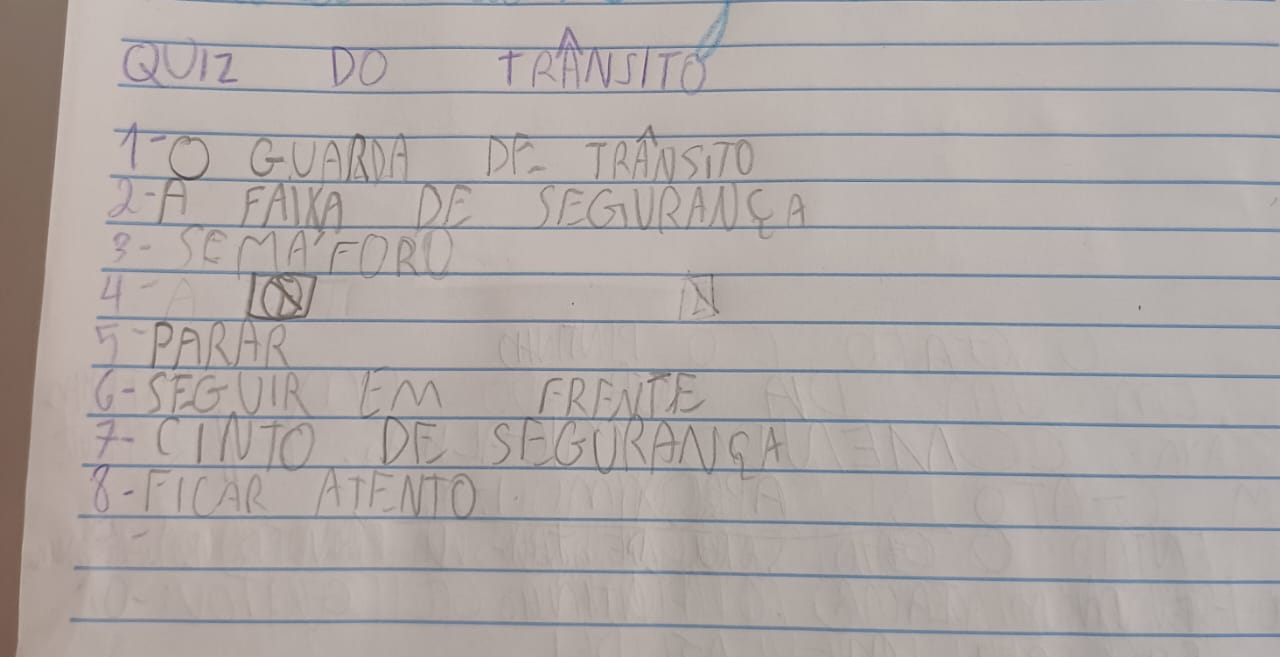 QUIZ DO TRÂNSITO
1-O GUARDA DE TRÂNSITO
2-A FAIXA DE SEGURANÇA
3- SEMÁFORO
4-
5-PARAR
6-SEGUIR EM FRENTE
7- CINTO DE SEGURANÇA
8-FICAR ATENTO